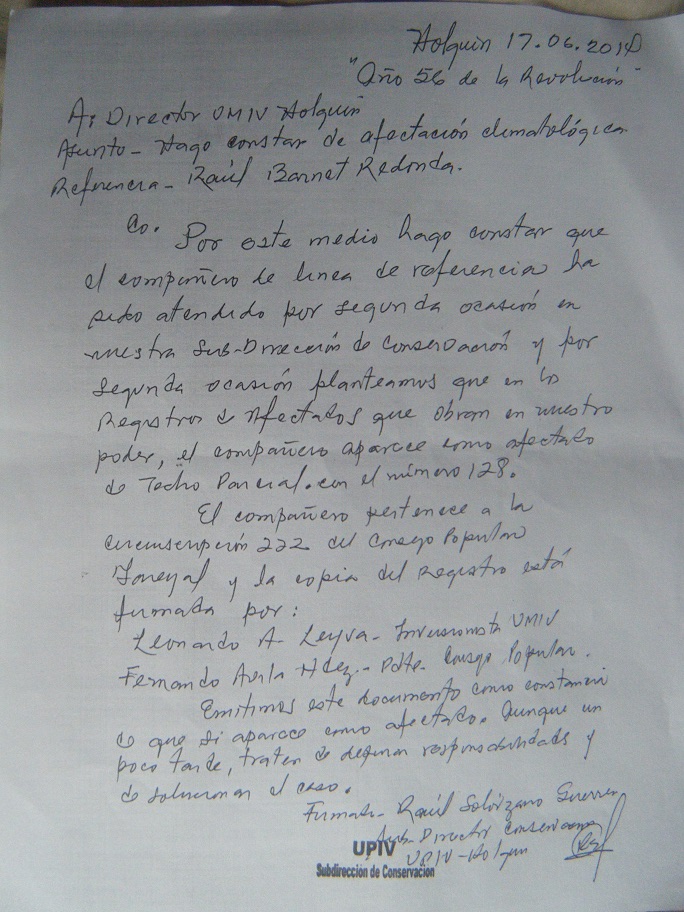 Holguín 17.06.2014
"Año 56 de la Revolución"
A: Director UMIV Holguín
Asunto - Hago constar de afectación climatológica.
Referencia - Raúl Barnet Redonda.
Co. Por este medio hago constar que
el compañero de linea de referencia ha
sido atendido por segunda ocasión en
nuestra Sub-Dirección de Conservación y por
segunda ocasión planteamos que en los
Registros de Afectados que obran en nuestro
poder, el compañero aparece como afectado
de Techo Parcial. con el número 128.
El compañero pertenece a la
circunscripción 222 del Consejo Popular
y la copia del registro está
firmada por:
Leonardo A. Leyva - Inversionista UMIV
Fernando Avila Hdez. - Pdte. Consejo Popular.
Emitimos este documento como constancia
de que si aparece como afectado. Aunque un
poco tarde, traten de definir responsabilidads y
de solucionar el caso.
Firmado - Raúl Solórzano Guerrero
Sub-Director Conservación
UPIV-Holguín
UPIV
Subdirección de Conservación